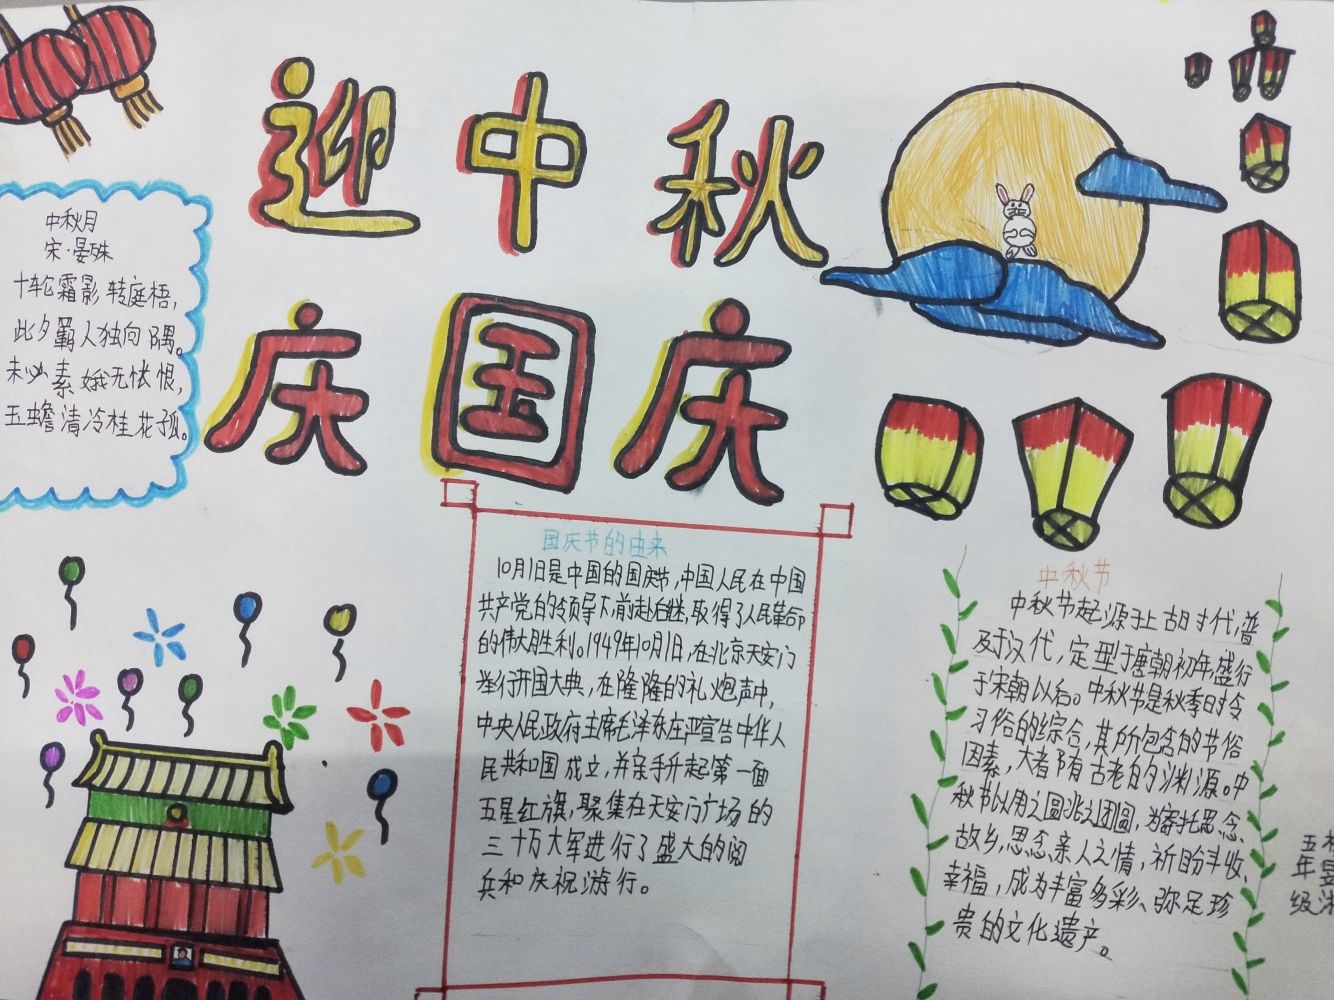 迎中秋
庆国庆
中秋月
宋·晏殊
十轮霜影转庭梧，
此夕羁人独向隅。
未必素娥无怅恨，
玉蟾清冷桂花孤。
国庆节的由来
10月1日是中国的国庆节，中国人民在中国
共产党的领导下，前赴后继，取得了人民革命
的伟大胜利。1949年10月1日，在北京天安门
举行开国大典，在隆隆的礼炮声中，
中央人民政府主席毛泽东庄严宣告中华人
民共和国成立，并亲手升起第一面
五星红旗，聚集在天安门广场的
三十万大军进行了盛大的阅
兵和庆祝游行。
中秋节
中秋节起源于上古时代，普
及于汉代，定型于唐朝初年，盛行
于宋朝以后。中秋节是秋季时令
习俗的综合，其所包含的节俗
因素，大者都有古老的渊源。中
秋节以月之圆兆人之团圆，为寄托思念
故乡，思念亲人之情，祈盼丰收、
幸福，成为丰富多彩、弥足珍
贵的文化遗产。
五年级